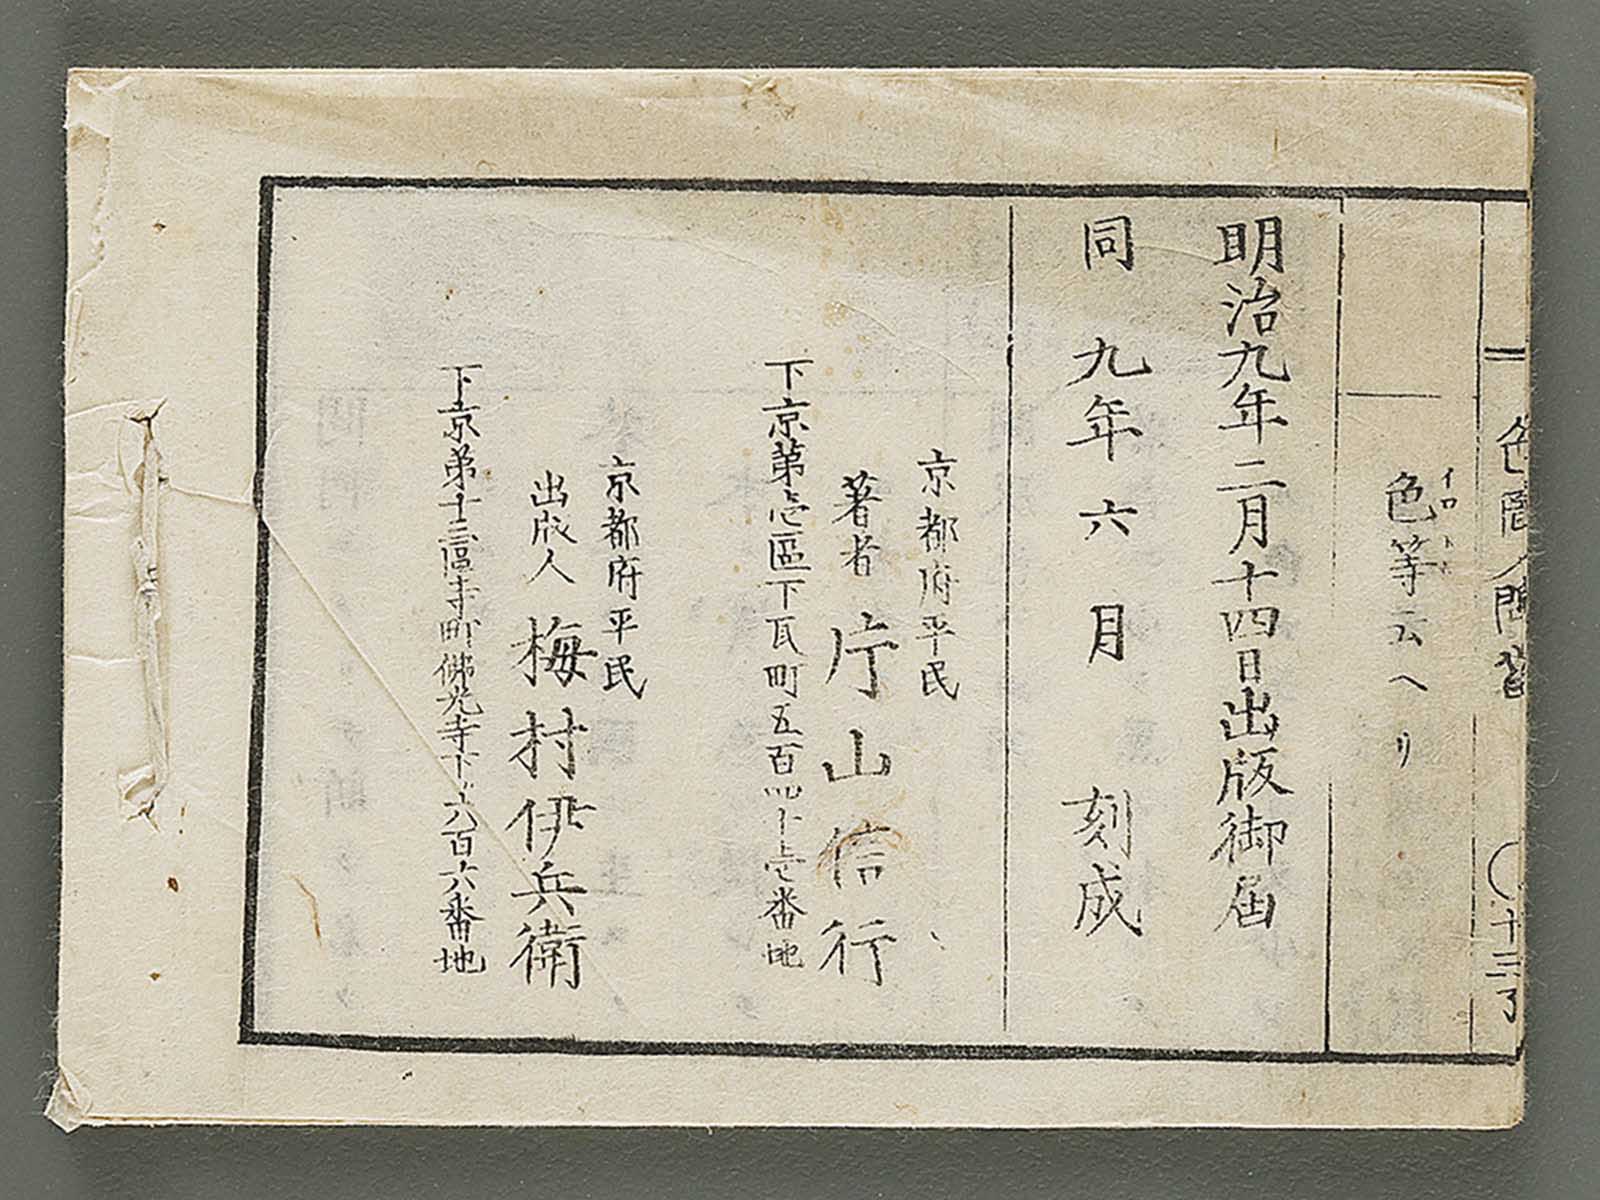 色圖問答
○十三了
色等云ヘリ
イロトハ
明治九年二月十四日出版御届
同九年六月刻成
京都府平民
著者 片山信行
下京第壱區下瓦町五百四十壱番地
京都府平民
出版人 梅村伊兵衛
下京弟十三區寺町佛光寺下ル六百六番地